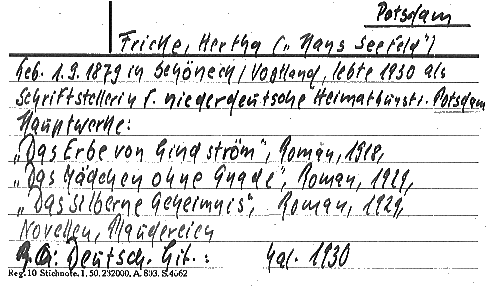 Potsdam
Fricke, Hertha („Hans Seefeld")
Geb. 1.9.1879 in Schöneck/Vogtland, lebte 1930 als
Schriftstellerin f. niederdeutsche Heimatkunst. Potsdam
Hauptwerke:
„Das Erbe von Gindström", Roman, 1918,
„Das Mädchen ohne Gnade", Roman, 1929,
„Das silberne Geheimnis", Roman, 1929,
Novellen, Plaudereien
Deutsch. Lit.: Kal. 1930
Reg. 10 Stichnote. 1. 50. 232000. A. 803. S. 4662